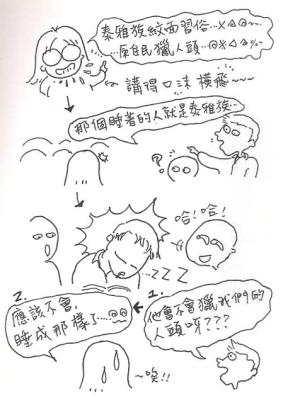 泰雅族紋面習俗...x@@~~
原住民獵人頭...@x△@%-
講得口沫橫飛~~~~
那個睡著的人就是泰雅族...
?
哈!哈!
...zzZ
2.
應該不會,
睡成那樣了...
1.
他會不會獵我們的
人頭呀???
~唉!!